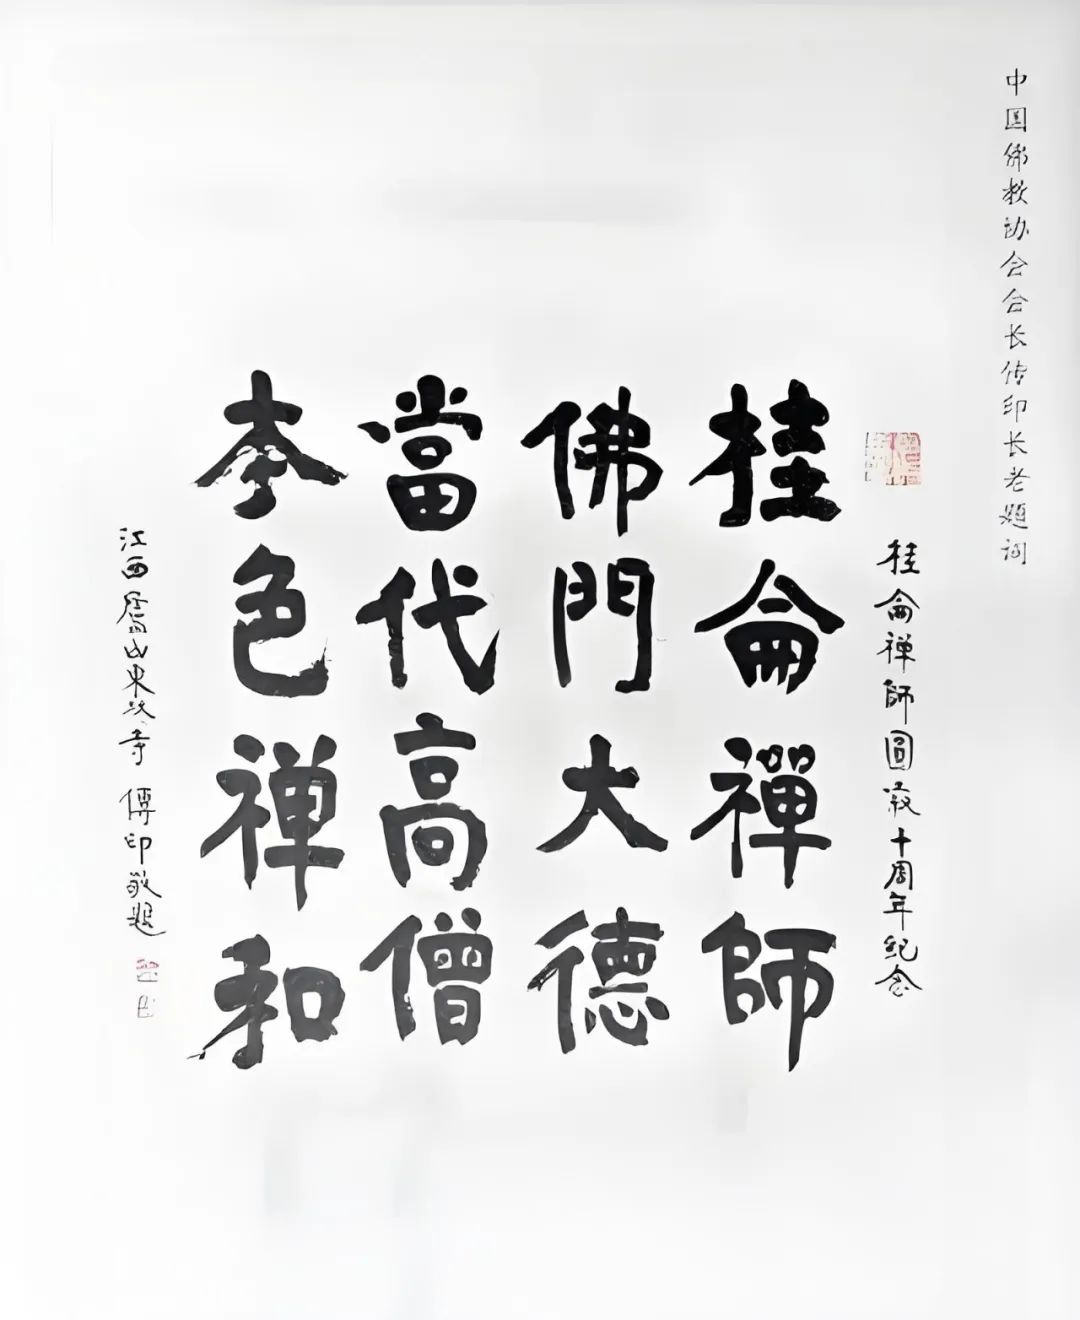 中国佛教协会会长传印长老题词
桂侖禅師圓寂十周年纪念
桂侖禪師
佛門大德
當代高僧
本色禅和
江西廬山東林寺 傳印敬题